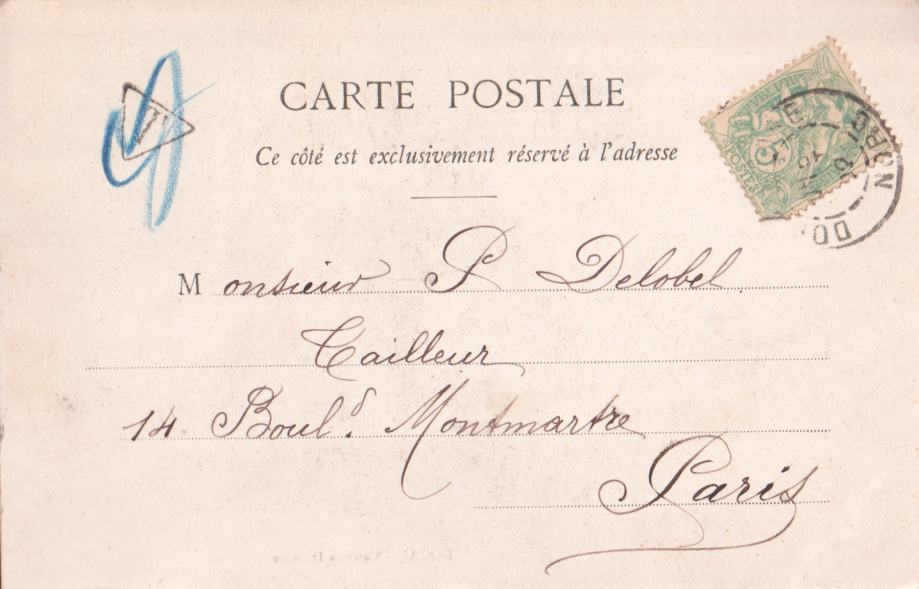 CARTE POSTALE
Ce côté est exclusivement réservé à l'adresse
T
Monsieur P Delobel
Tailleur
14 Boul.d Montmartre
Paris
NORD